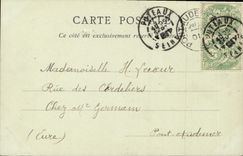 CARTE POSTALE
Ce côté est exclusivement réservé
PUTEAUX
SEINE
PUTEAUX
SEINE
Mademoiselle H. Lecœur
Rue des Cordeliers
Chez Mr Germain
(Eure) Pont-Audemer